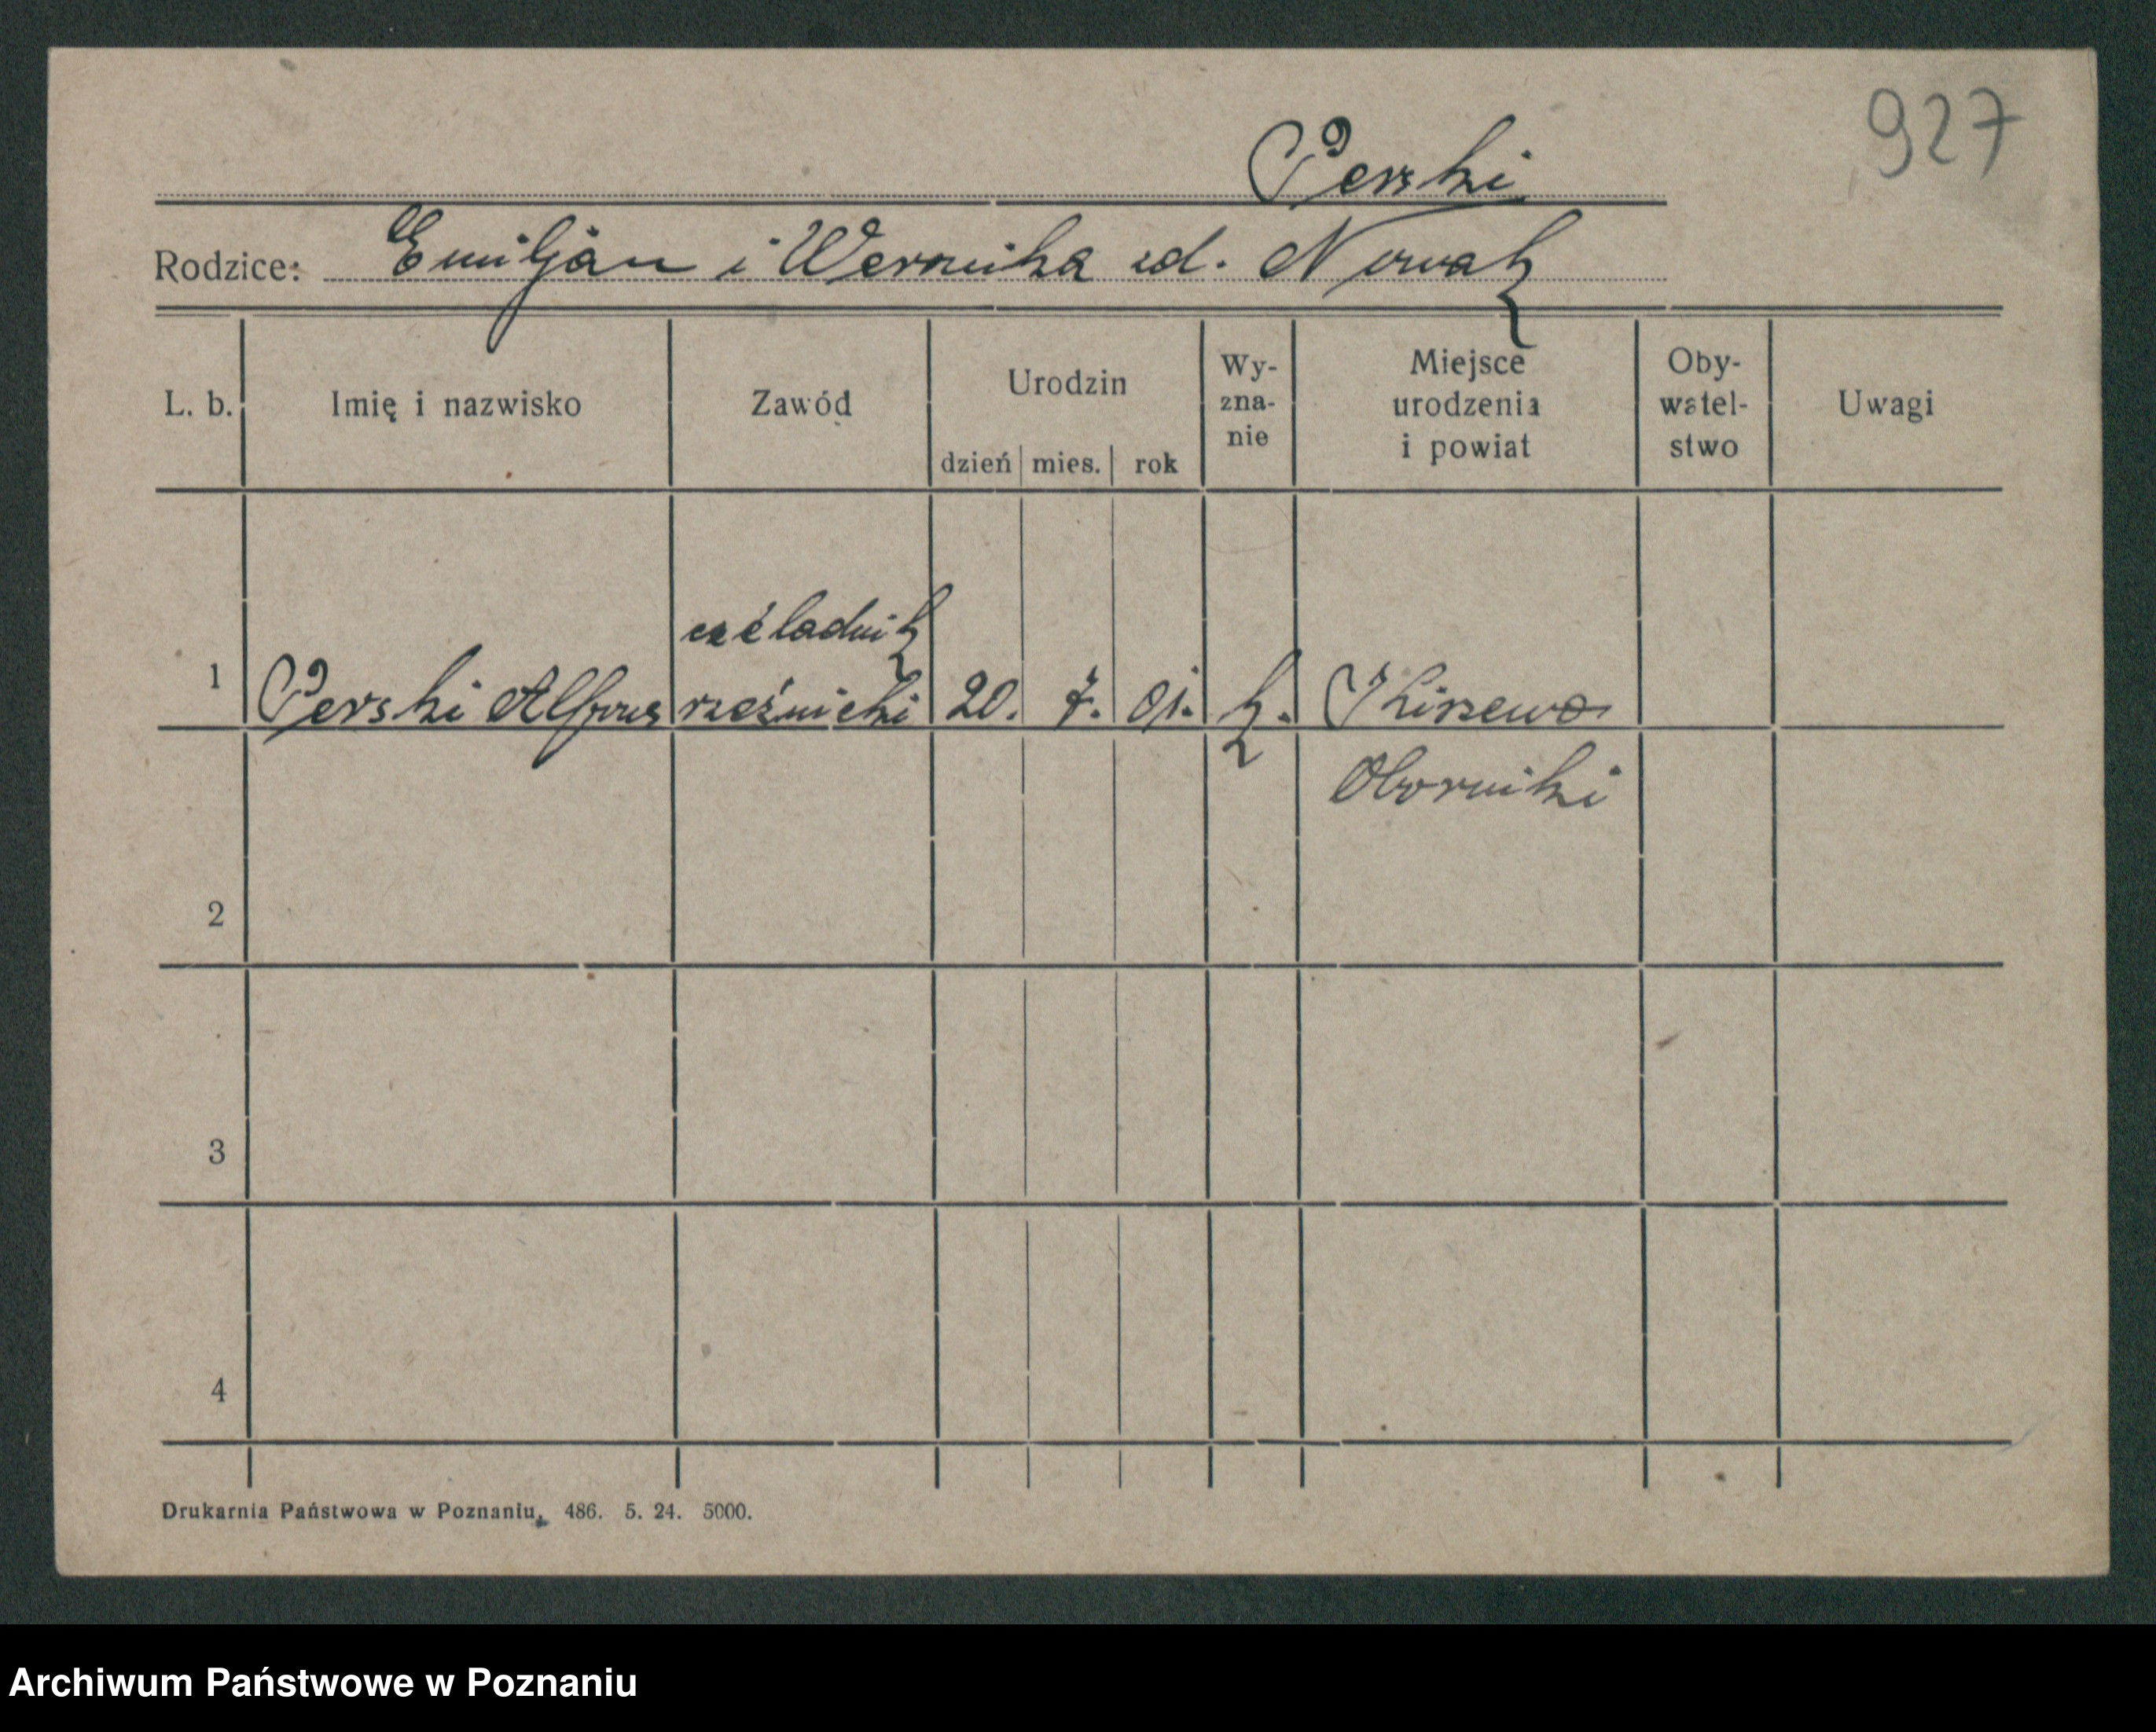 927
Perski
Rodzice: Emiljan i Weronika zd. Nowak
L. b. Imię i nazwisko Zawód Urodzin dzień mies. rok Wy-zna-nie Miejsce urodzenia i powiat Oby-watel-stwo Uwagi
czeladnik
1 Perski Alfons rzeźnicki 20. 7. 01. k. Kiszewo
Oborniki
2
3
4
Drukarnia Państwowa w Poznaniu, 486. 5. 24. 5000.
Archiwum Państwowe w Poznaniu